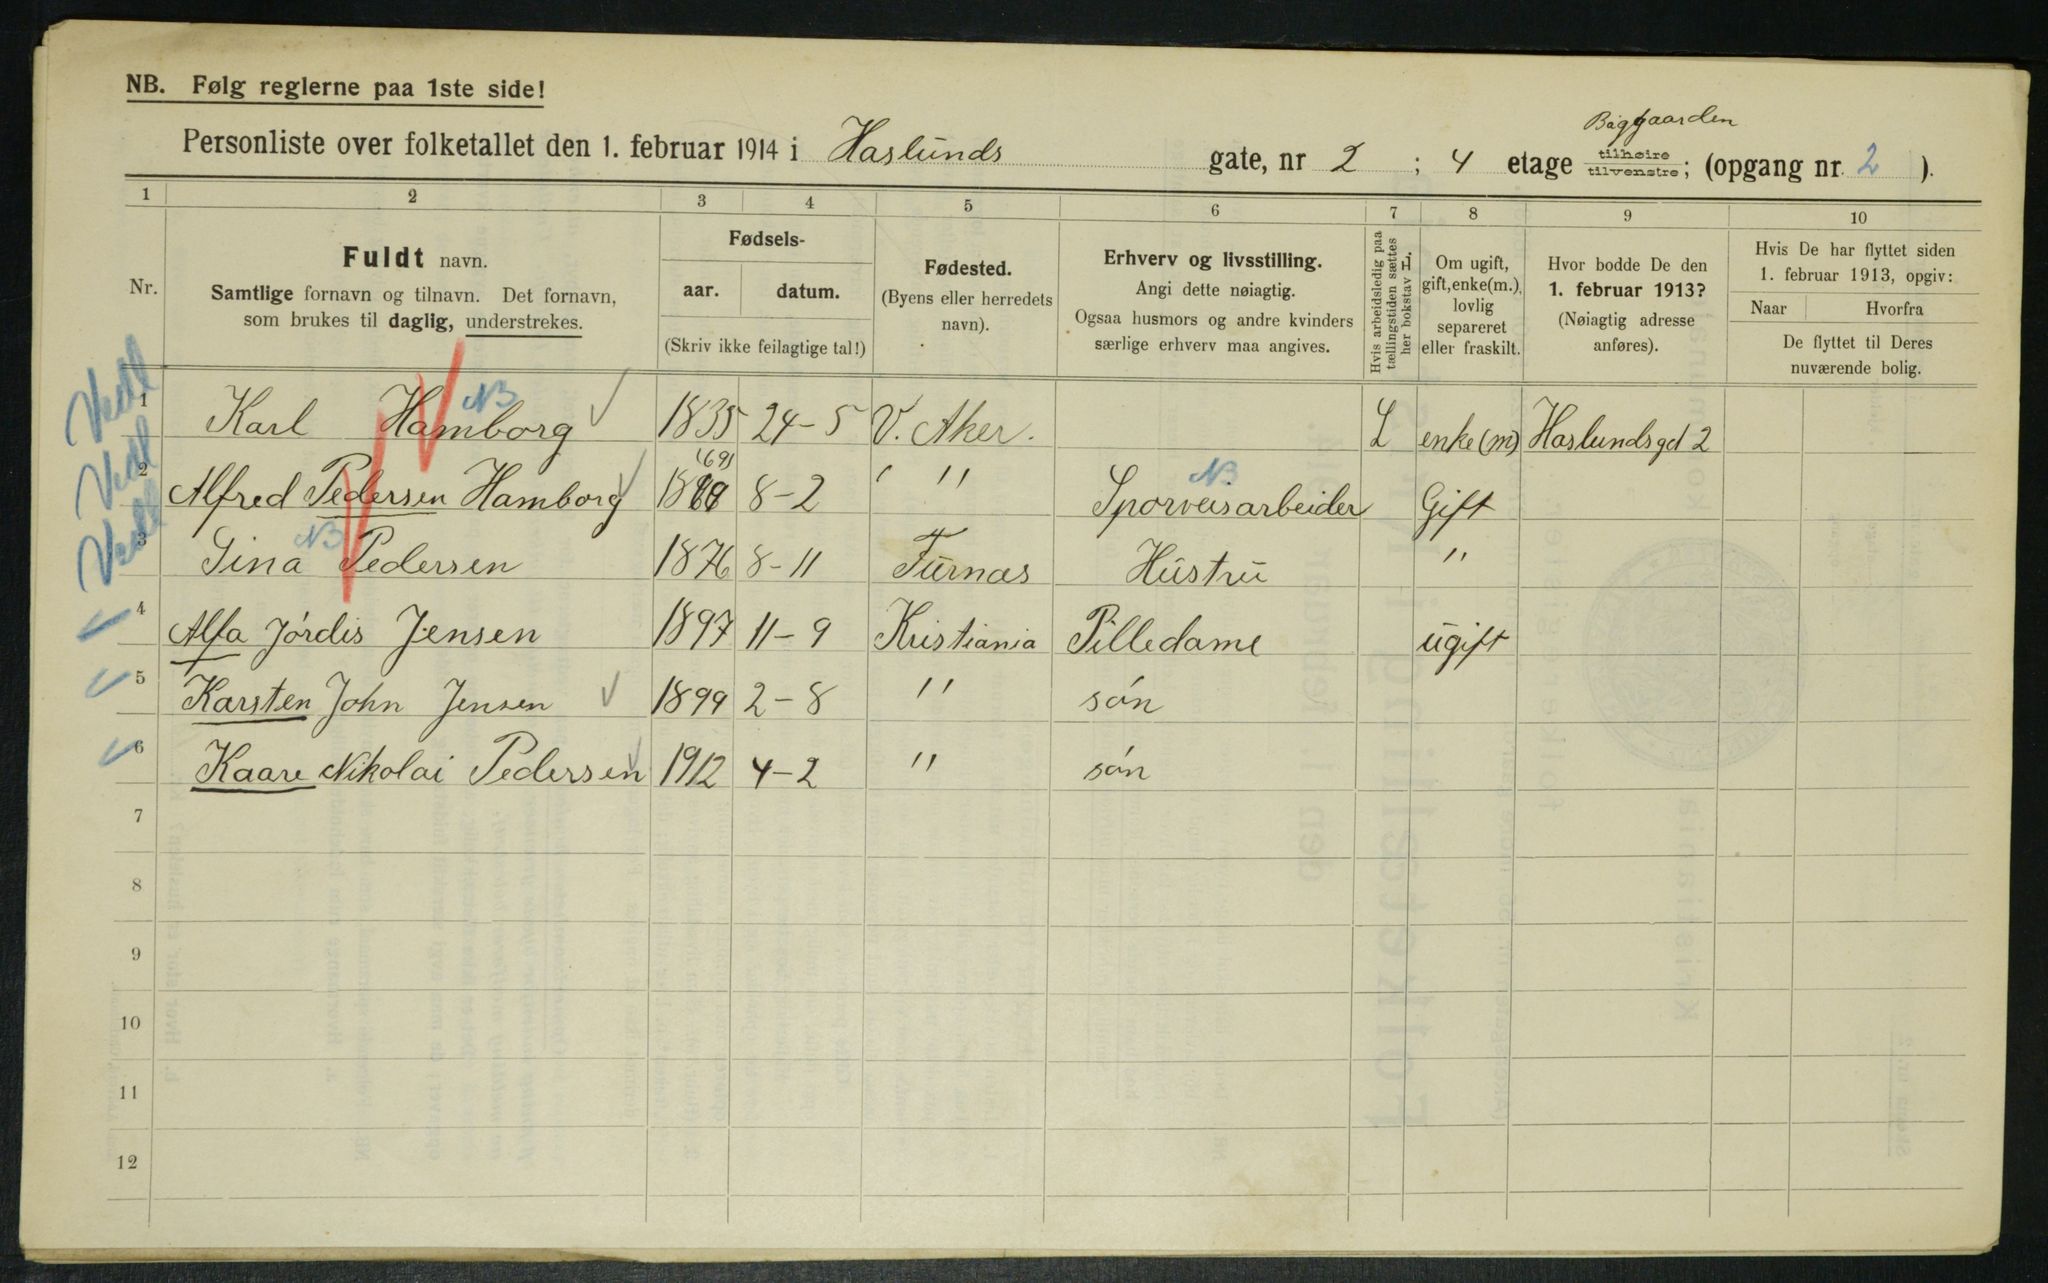 NB. Følg reglerne paa 1ste side!
Baggaarden
Personliste over folketallet den 1. februar 1914 i Haslunds gate, nr 2 ; 4 etage tilhøire tilvenstre; (opgang nr. 2 ).
1 2 3 4 5 6 7 8 9 10
Nr.
Fuldt navn.
Samtlige fornavn og tilnavn. Det fornavn,
som brukes til daglig, understrekes.
Fødsels-
aar. datum.
(Skriv ikke feilagtige tal!)
Fødested.
(Byens eller herredets
navn).
Erhverv og livsstilling.
Angi dette nøiagtig.
Ogsaa husmors og andre kvinders
særlige erhverv maa angives.
Hvis arbeidsledig paa
tællingstiden sættes
her bokstav L.
Om ugift,
gift, enke(m.),
lovlig
separeret
eller fraskilt.
Hvor bodde De den
1. februar 1913?
(Nøiagtig adresse
anføres).
Hvis De har flyttet siden
1. februar 1913, opgiv:
Naar Hvorfra
De flyttet til Deres
nuværende bolig.
NB
1 Karl Hamborg 1835 24-5 V. Aker. L enke(m) Haslundsgd 2
(69) NB
2 Alfred Pedersen Hamborg 8-2 " " Sporveisarbeider Gift
NB
3 Gina Pedersen 1876 8-11 Furnæs Hustru "
4 Alfa Jórdis Jensen 1897 11-9 Kristiania Pilledame ugift
5 Karsten John Jensen 1899 2-8 " són
6 Kaare Nikolai Pedersen 1912 4-2 " són
7
8
9
10
11
12